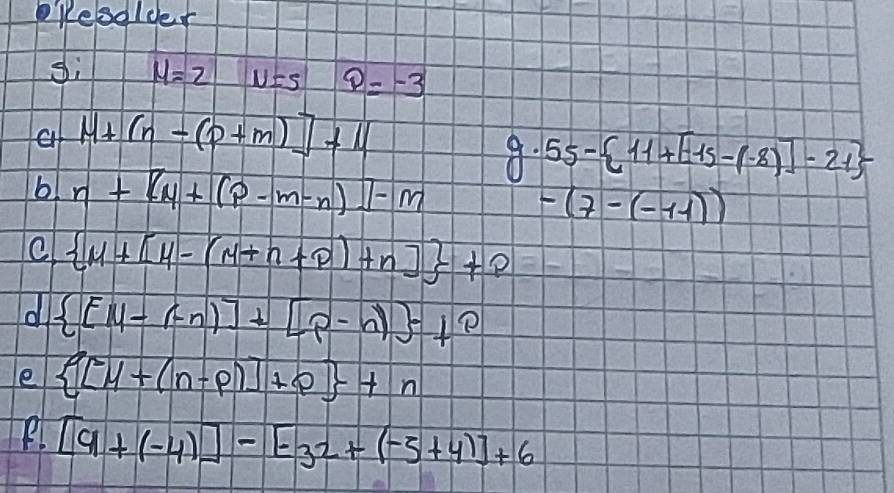 Resolver
Si M=2 N=5 P=-3
a. M+[n-(p+m)]+M
b. n+[M+(P-m-n)]-m
c. {M+[M-(M+n+P)+n]}+P
d. {[M-(-n)]+[p-n)}+P
e {[M+(n-p)]+p}+n
f. [9+(-4)]-[-32+(-5+4)]+6
g. 55-{11+[-15-(-8)]-21}
-(7-(-11))